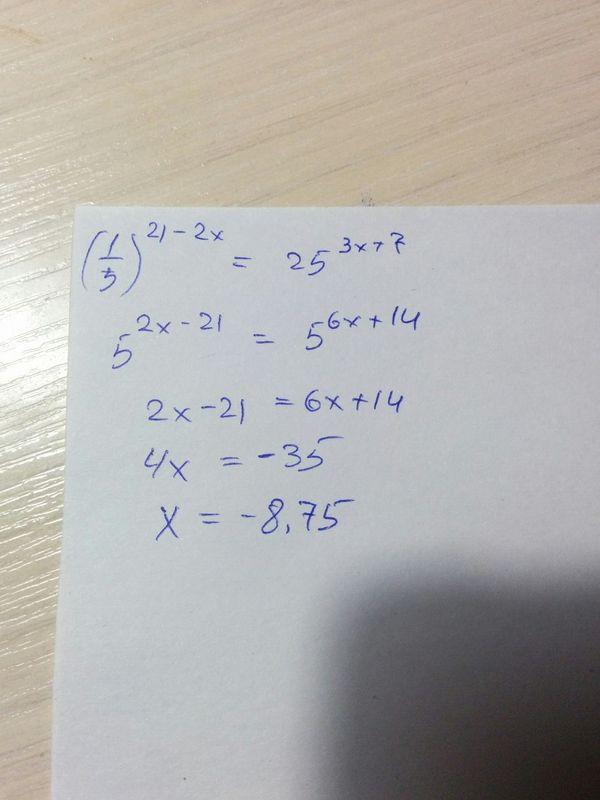 (1/5)^(21-2x) = 25^(3x+7)
5^(2x-21) = 5^(6x+14)
2x-21 = 6x+14
4x = -35
x = -8,75